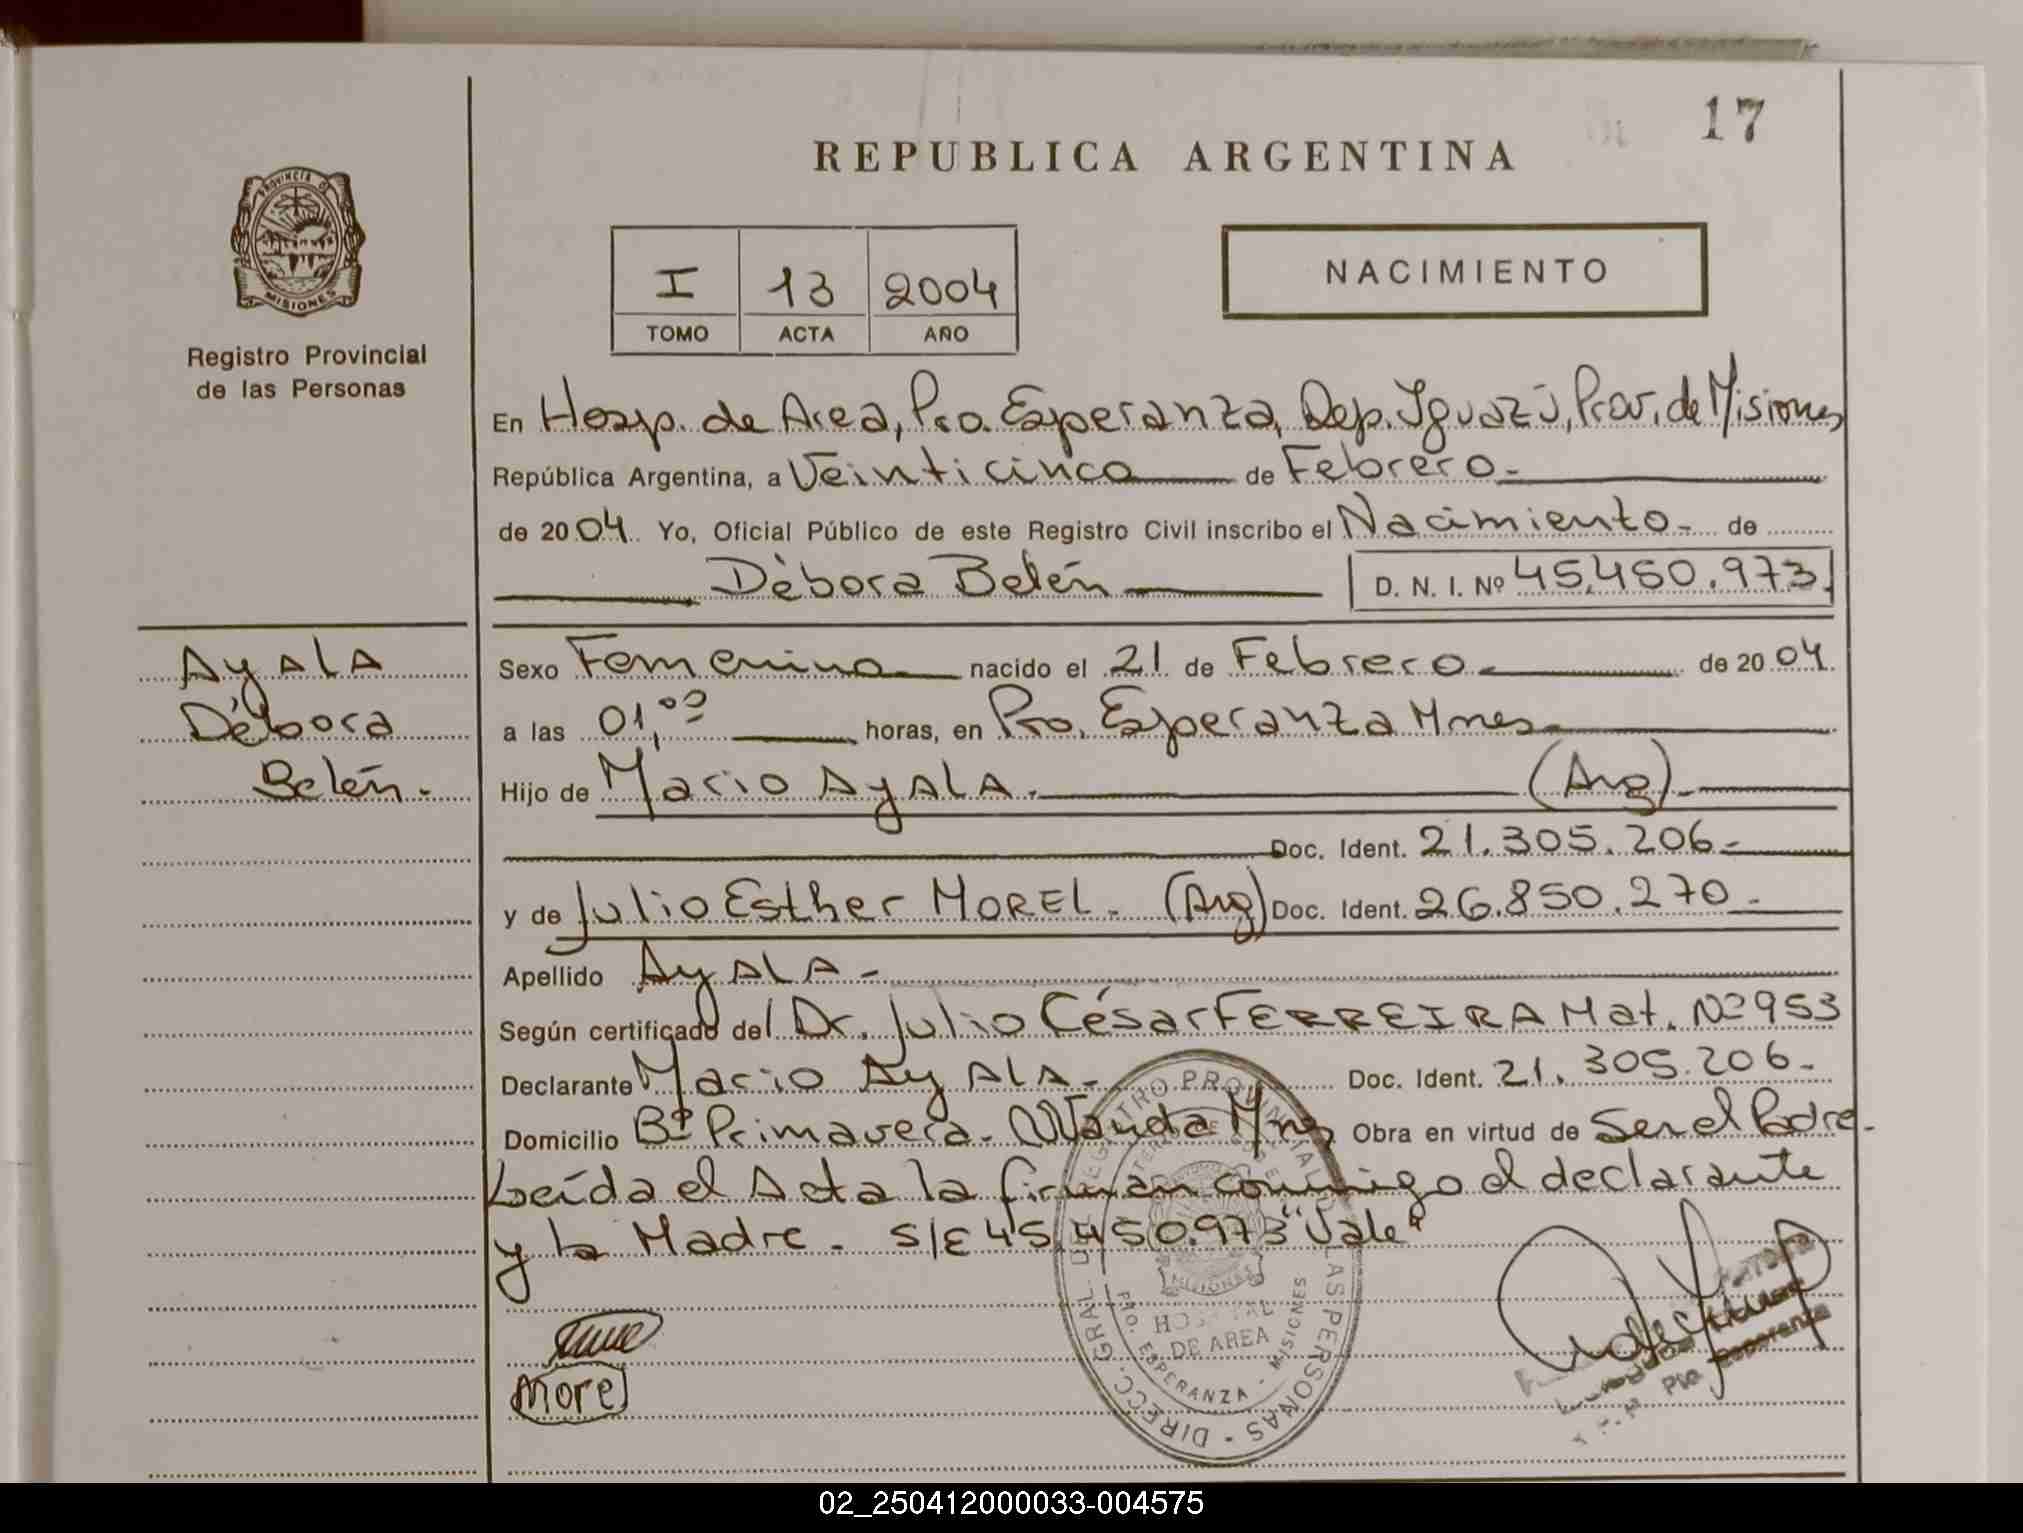 17
REPUBLICA ARGENTINA
PROVINCIA DE
MISIONES
Registro Provincial
de las Personas
I 13 2004
TOMO ACTA AÑO
NACIMIENTO
En Hosp. de Area, Pto. Esperanza, Dep. Iguazú, Prov. de Misiones
República Argentina, a Veinticinco de Febrero.-
de 2004. Yo, Oficial Público de este Registro Civil inscribo el Nacimiento.- de
Dèbora Belén D. N. I. Nº 45.450.973.
Ayala
Débora
Belén.-
Sexo Femenino nacido el 21 de Febrero.- de 2004.
a las 01,00 horas, en Pto. Esperanza Mnes.-
Hijo de Mario AyALA.- (Arg).-
Doc. Ident. 21.305.206.-
y de Julio Esther MOREL.- (Arg) Doc. Ident. 26.850.270.-
Apellido AyALA.-
Según certificado del Dr. Julio César FERREIRA Mat. Nº 953
Declarante Mario AyALA.- Doc. Ident. 21.305.206.-
Domicilio Bº Primavera.- Wanda Mnes Obra en virtud de Ser el Padre.-
Leída el Acta la firman conmigo el declarante
y la Madre.- S/E 45.450.973 "Vale"
Morel
DIRECC. GRAL. DEL REGISTRO PROVINCIAL DE LAS PERSONAS
MISIONES
HOSPITAL
DE AREA
PTO. ESPERANZA - MISIONES
Pto Esperanza
02_250412000033-004575